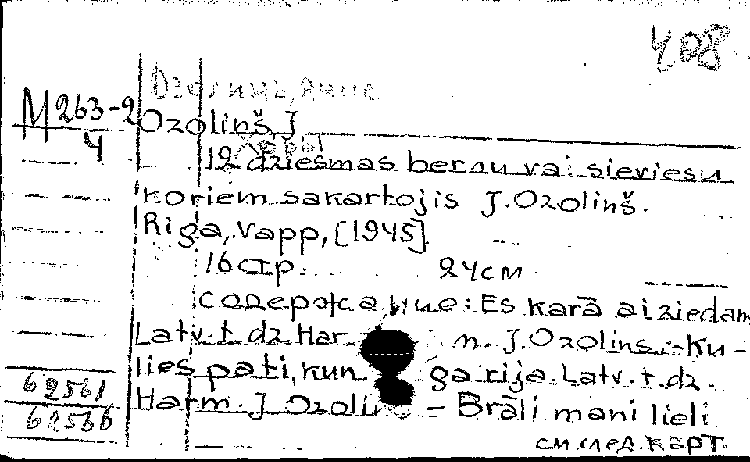 408
М 263-2
4
Озолинь, Янис
Ozoliņš J
12 dziesmas bernu vai sieviesu
koriem sakartojis J. Ozoliņš.
Riga, Vapp, [1945].
16 стр. 24 см
содержание: Es karā aiziedam
Latv. t. dz. Har m. J. Ozolins. - Ku-
lies pati, kun ga rija. Latv. t. dz.
Harm. J. Ozolin - Brāli mani lieli
62561
62566
см. след. карт.